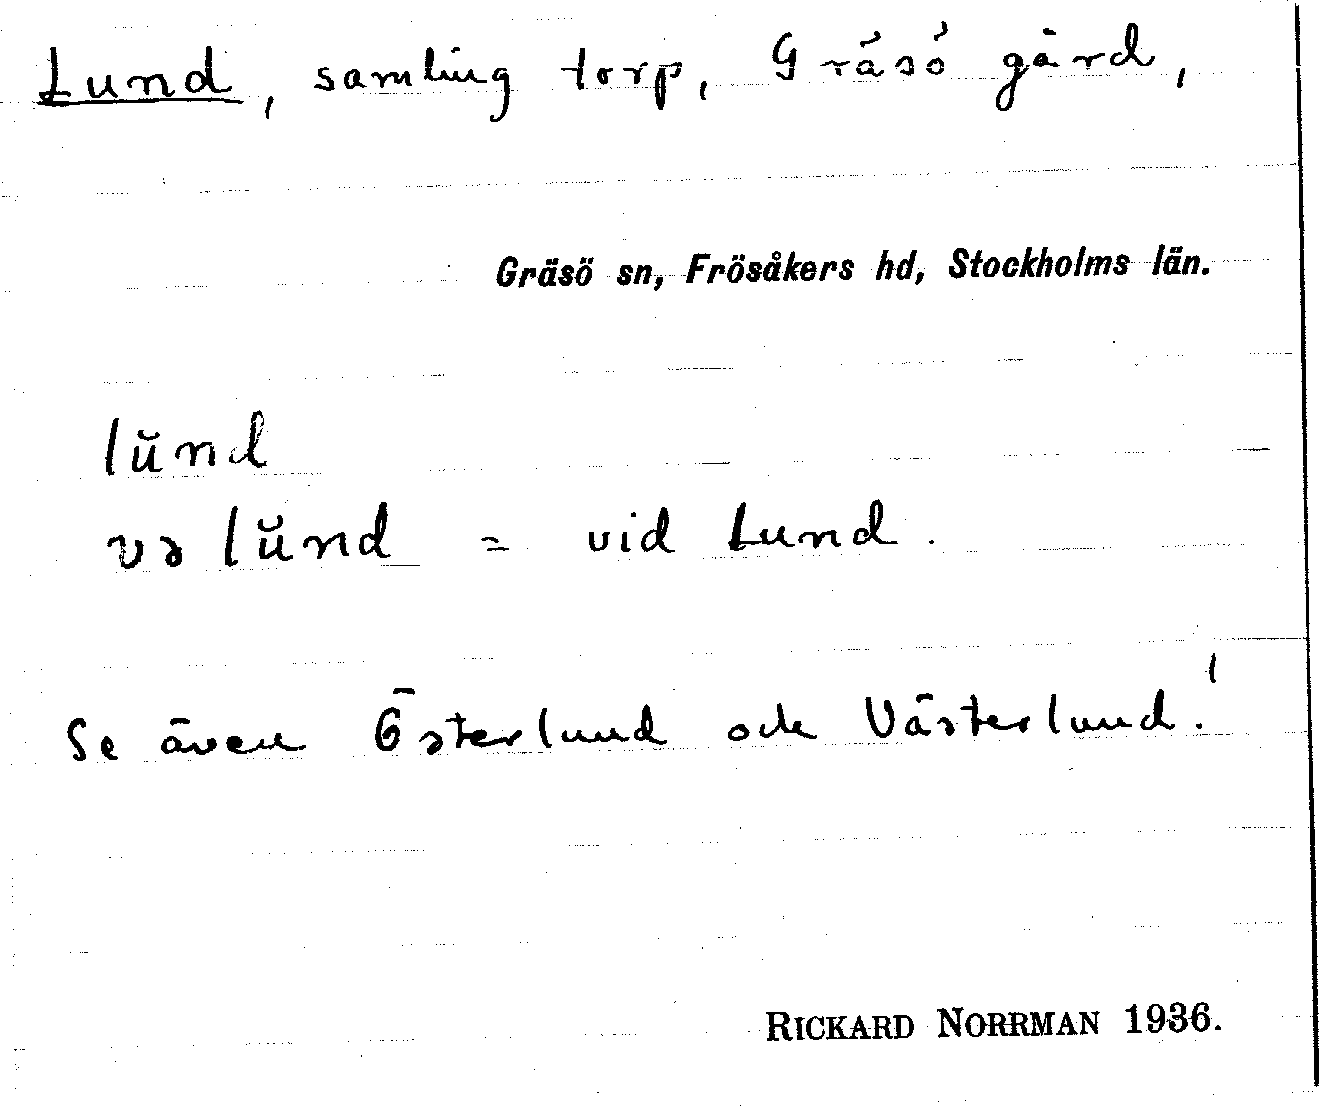 Lund, samling torp, Gräsö gård,
Gräsö sn, Frösåkers hd, Stockholms län.
lŭnd
və lŭnd = vid Lund.
Se även Österlund och Västerlund.!
RICKARD NORRMAN 1936.